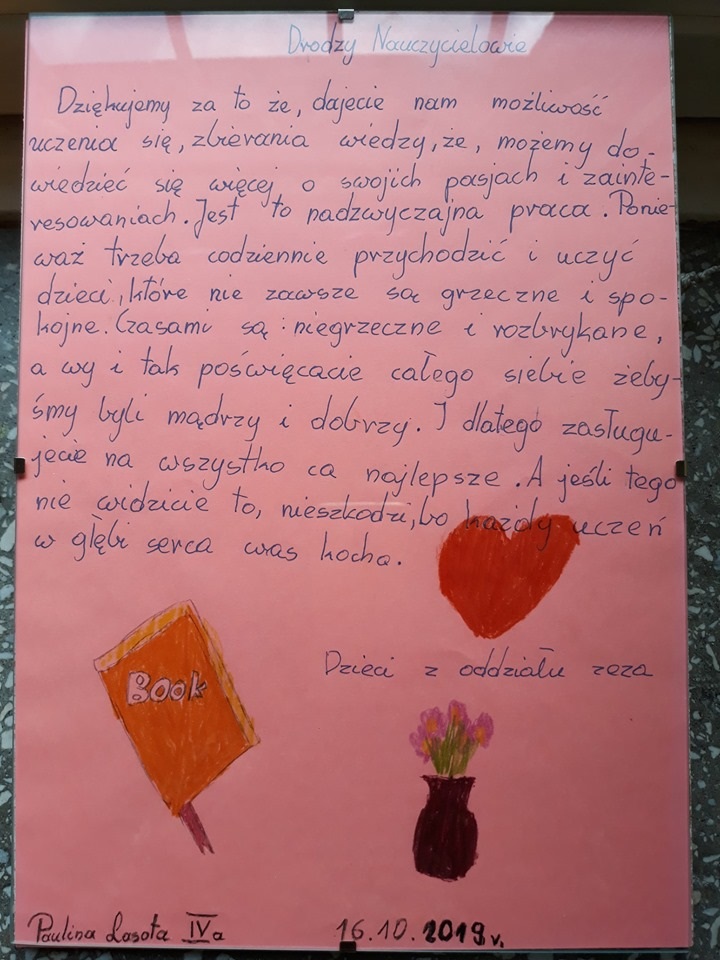 Drodzy Nauczycielowie
Dziękujemy za to że, dajecie nam możliwość
uczenia się, zbierania wiedzy, że, możemy do-
wiedzieć się więcej o swojich pasjach i zainte-
resowaniach. Jest to nadzwyczajna praca. Ponie-
waż trzeba codziennie przychodzić i uczyć
dzieci, które nie zawsze są grzeczne i spo-
kojne. Czasami są : niegrzeczne i rozbrykane,
a wy i tak poświęcacie całego siebie żeby-
śmy byli mądrzy i dobrzy. I dlatego zasługu-
jecie na wszystko co najlepsze. A jeśli tego
nie widzicie to, nieszkodzi, bo każdy uczeń
w głębi serca was kocha.
Dzieci z oddziału
BOOK
Paulina Lasota IVa 16.10.2019r.